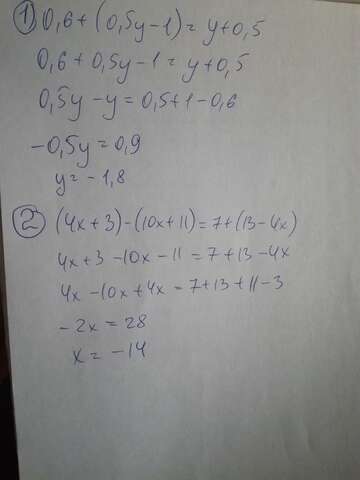 1) 0,6 + (0,5y - 1) = y + 0,5
0,6 + 0,5y - 1 = y + 0,5
0,5y - y = 0,5 + 1 - 0,6
-0,5y = 0,9
y = -1,8
2) (4x + 3) - (10x + 11) = 7 + (13 - 4x)
4x + 3 - 10x - 11 = 7 + 13 - 4x
4x - 10x + 4x = 7 + 13 + 11 - 3
-2x = 28
x = -14